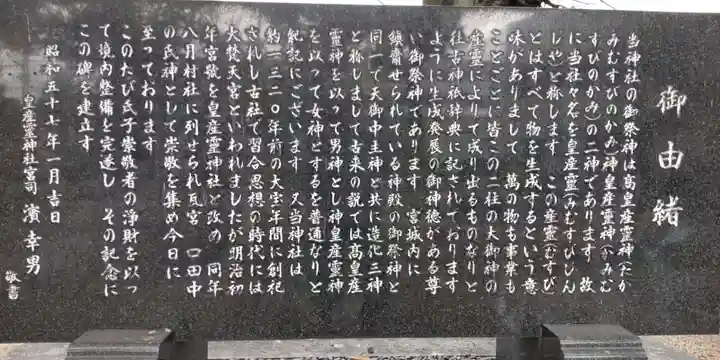 御由緒
当神社の御祭神は高皇産霊神(たか
みむすびのかみ)神皇産霊神(かみむ
すびのかみ)の二神であります 故
に当社々名を皇産霊(みむすび)じん
じやと称します この産霊(むすび)
とはすべて物を生成するという意
味がありまして 萬の物も事業も
ことごとに皆この二柱の大御神の
産霊によりて成り出るものなりと
往古神祇辞典に記されております
ように生成発展の御神徳がある尊
い御祭神であります 宮城内に
鎮斎せられている神殿の御祭神と
同一で天御中主神と共に造化三神
と称しまして古来の説では高皇産
霊神を以って男神とし神皇産霊神
を以って女神とするを普通なりと
紀記にございます 又当神社は
約一三二〇年前の大宝年間に創祀
されし古社で習合思想の時代には
大梵天宮といわれましたが明治初
年宮號を皇産霊神社と改め 同年
八月村社に列せられ瓦宮 口田中
の氏神として崇敬を集め今日に
至っております
このたび氏子崇敬者の浄財を以っ
て境内整備を完遂し その記念に
この碑を建立す
昭和五十七年一月吉日
皇産霊神社宮司 濱 幸男
敬書